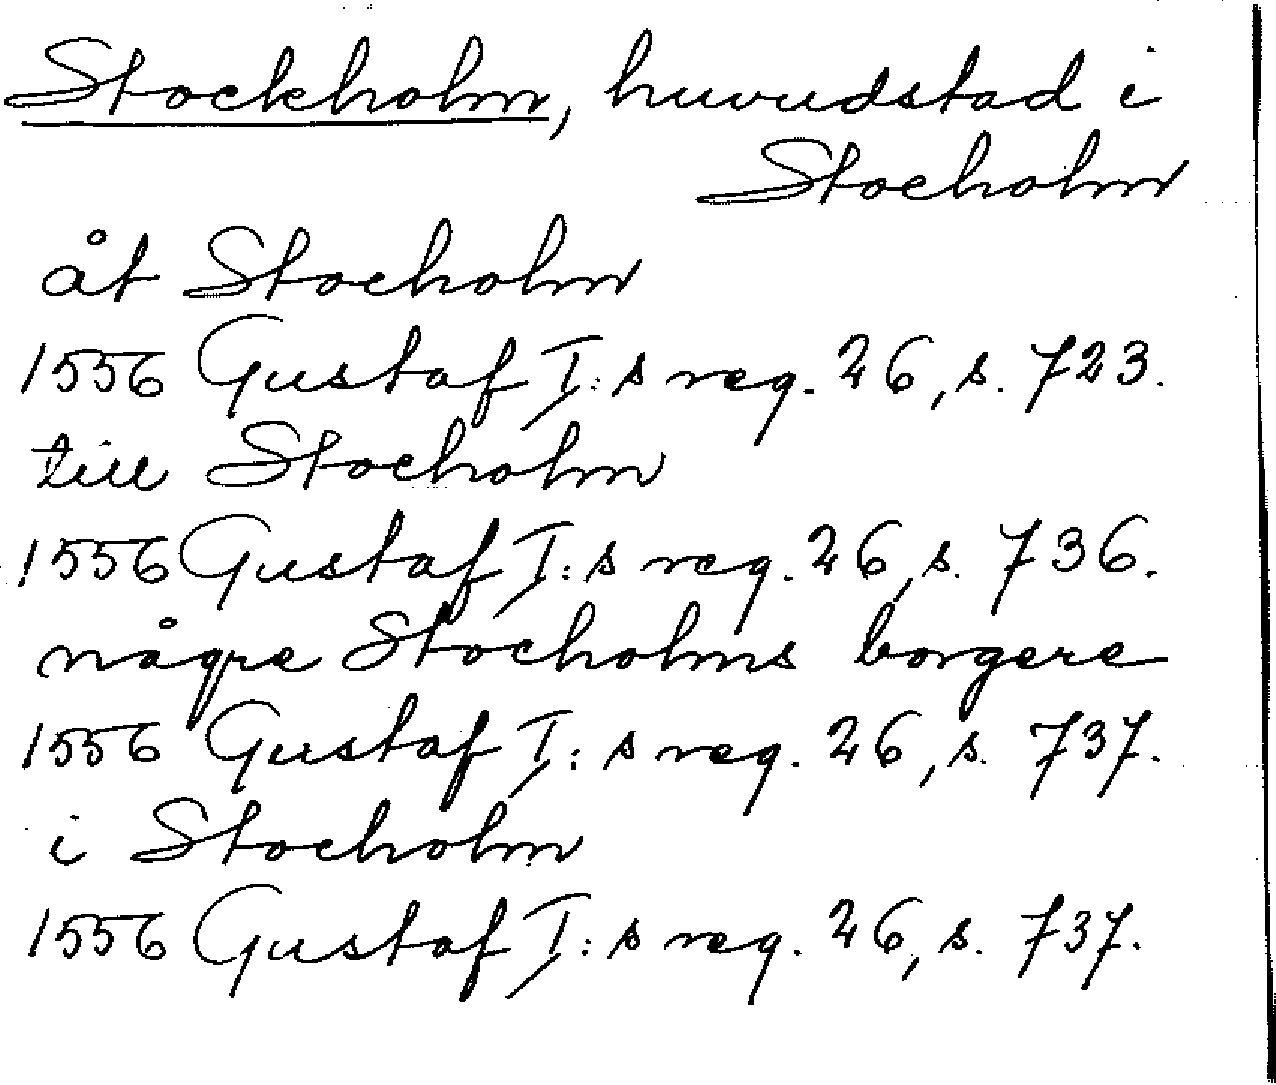 Stockholm, huvudstad i
Stocholm
åt Stocholm
1556 Gustaf I:s reg. 26, s. 723.
till Stocholm
1556 Gustaf I:s reg. 26, s. 736.
någre Stocholms borgere
1556 Gustaf I:s reg. 26, s. 737.
i Stocholm
1556 Gustaf I:s reg. 26, s. 737.